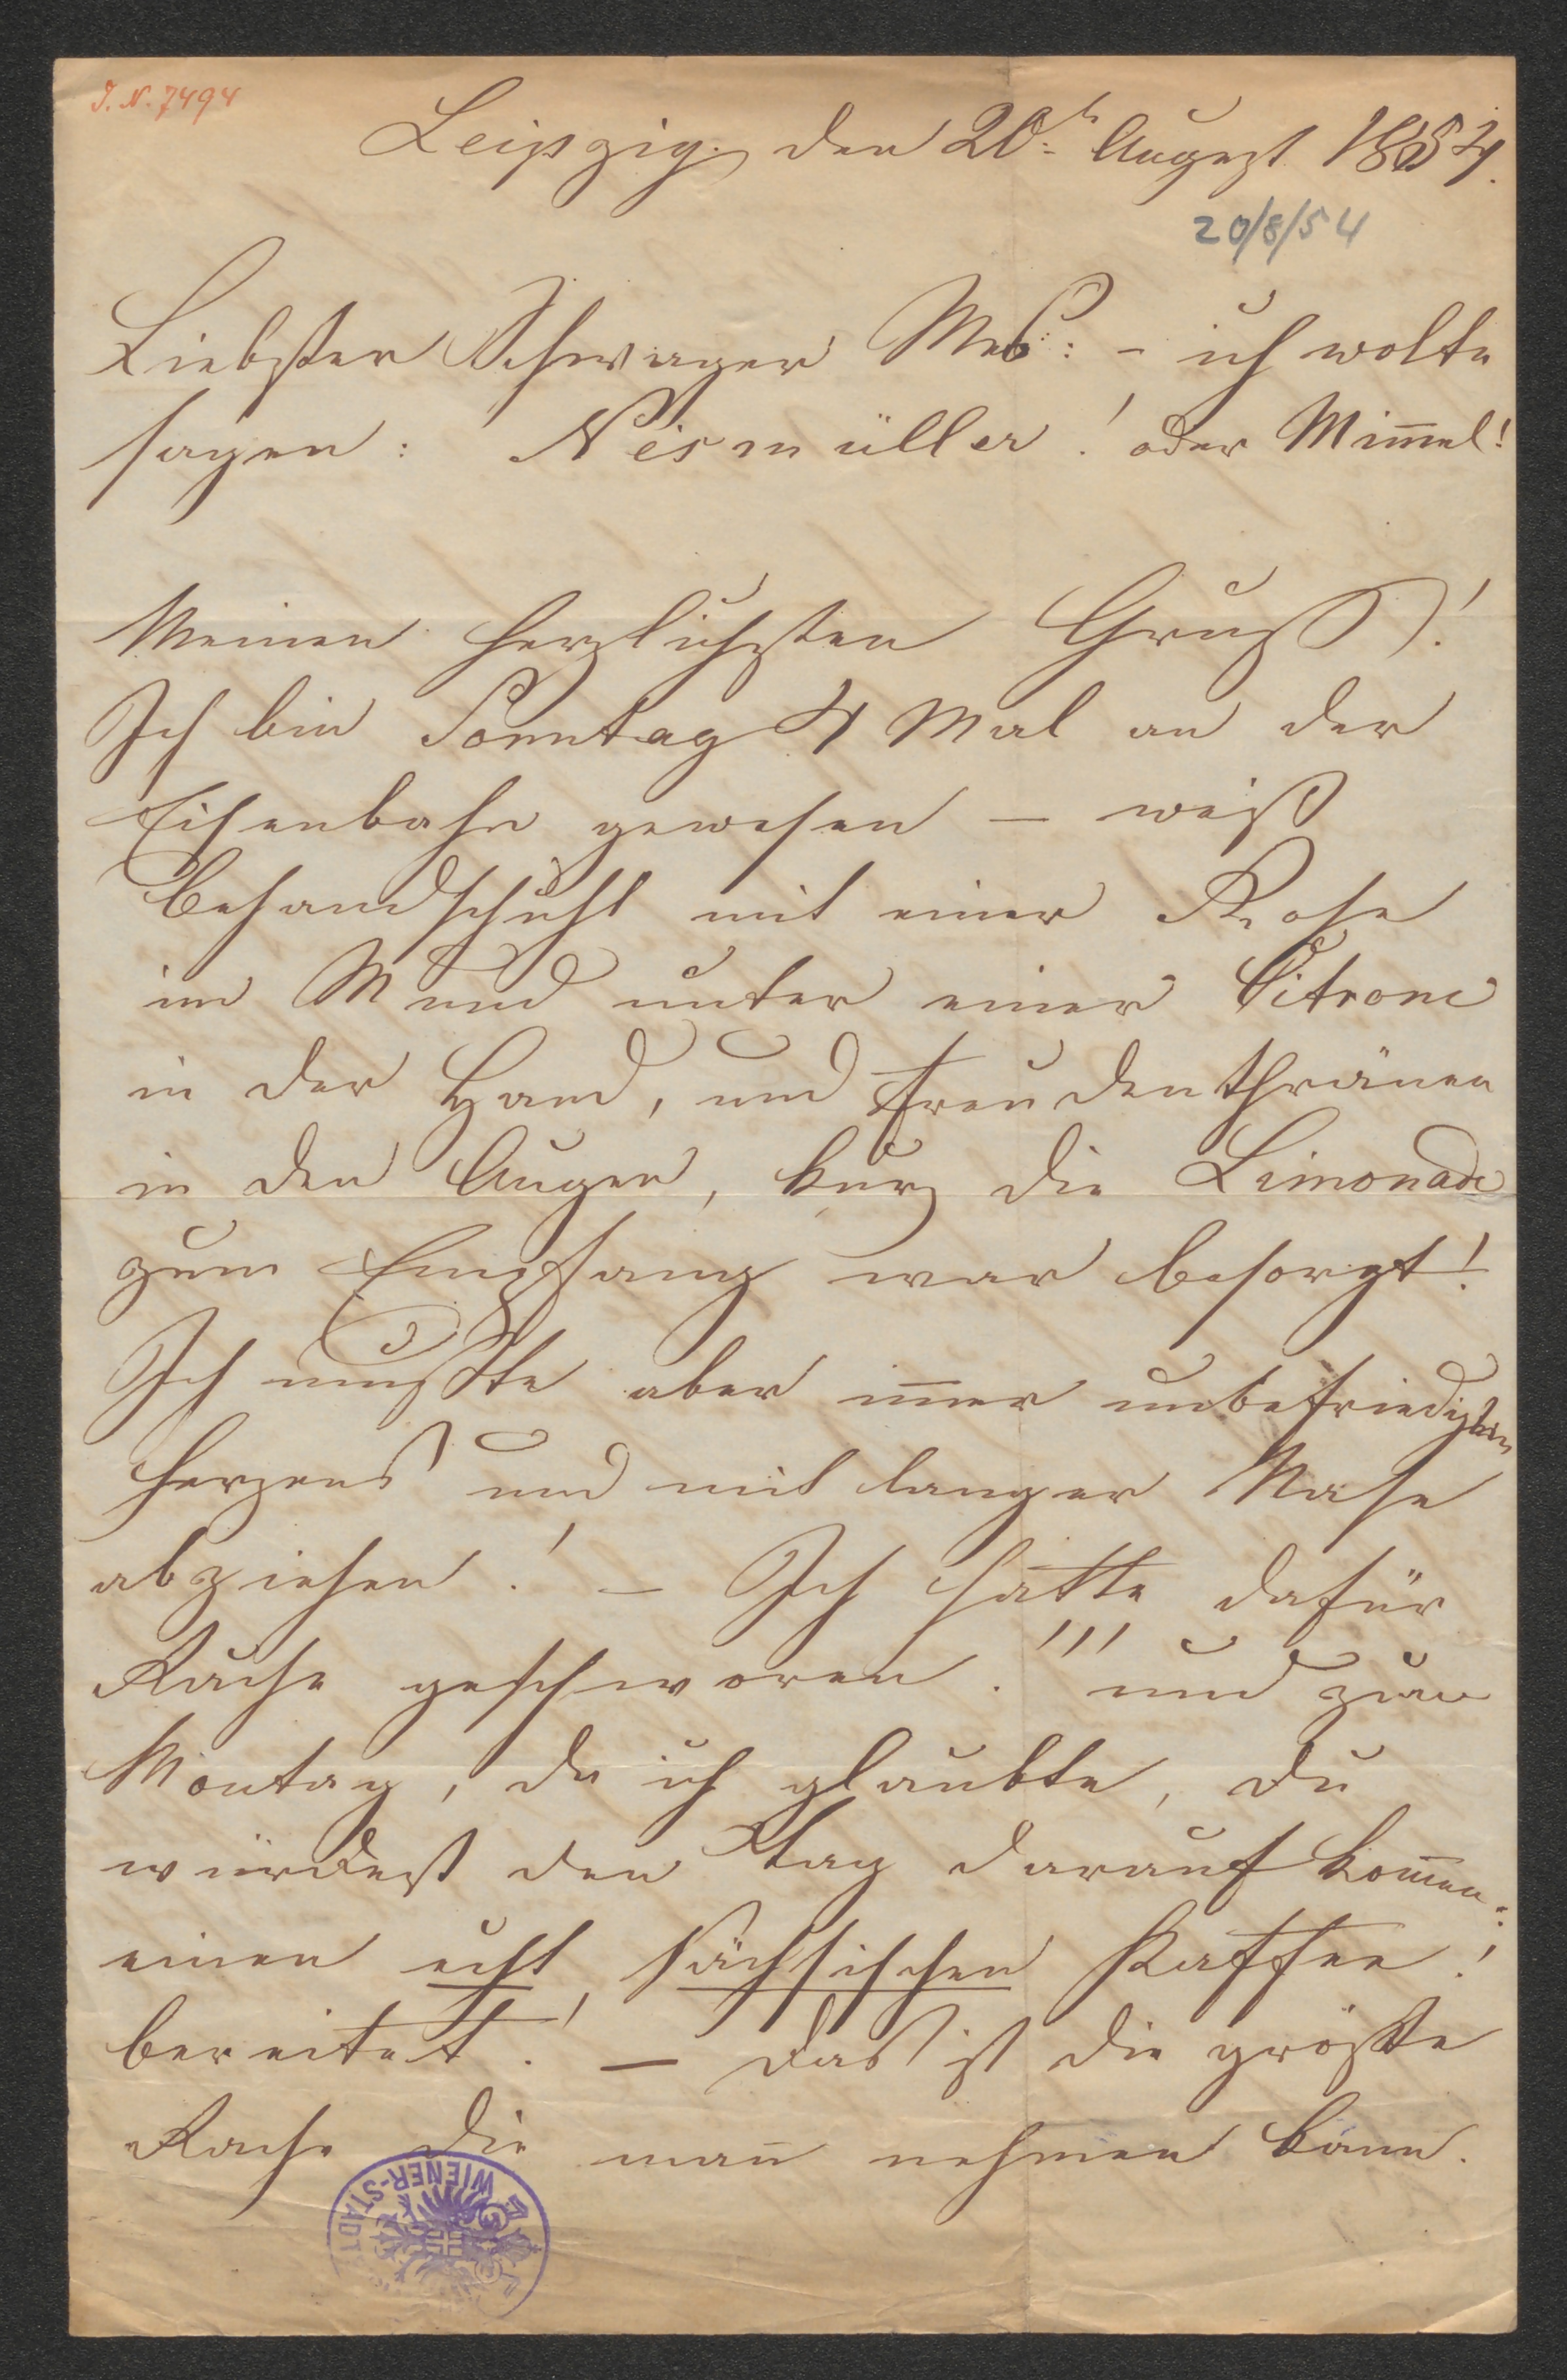 J. N. 7494
Leipzig, den 20t. August 1854.
20/8/54
Liebster Schwager Mes: – ich wolte
sagen: Nesmüller! oder Mim̄el!
Meinen herzlichsten Gruß!
Ich bin Sonntag 4 Mal an der
Eisenbahn gewesen – weiß
behandschuht mit einer Rose
im Mund unter einer Citrone
in der Hand, und Freudenthränen
in den Augen, kurz die Limonade
zum Empfang war besorgt!
Ich mußte aber im̄er unbefriedigten
Herzens und mit langer Nase
abziehen! – Ich hatte dafür
Rache geschworen!!! und zum
Montag, da ich glaubte, du
würdest den Tag darauf kom̄en:
einen echt, sächsischen Kaffee!
bereitet! – das ist die größte
Rache die man̄ nehmen kann.
WIENER-STADT